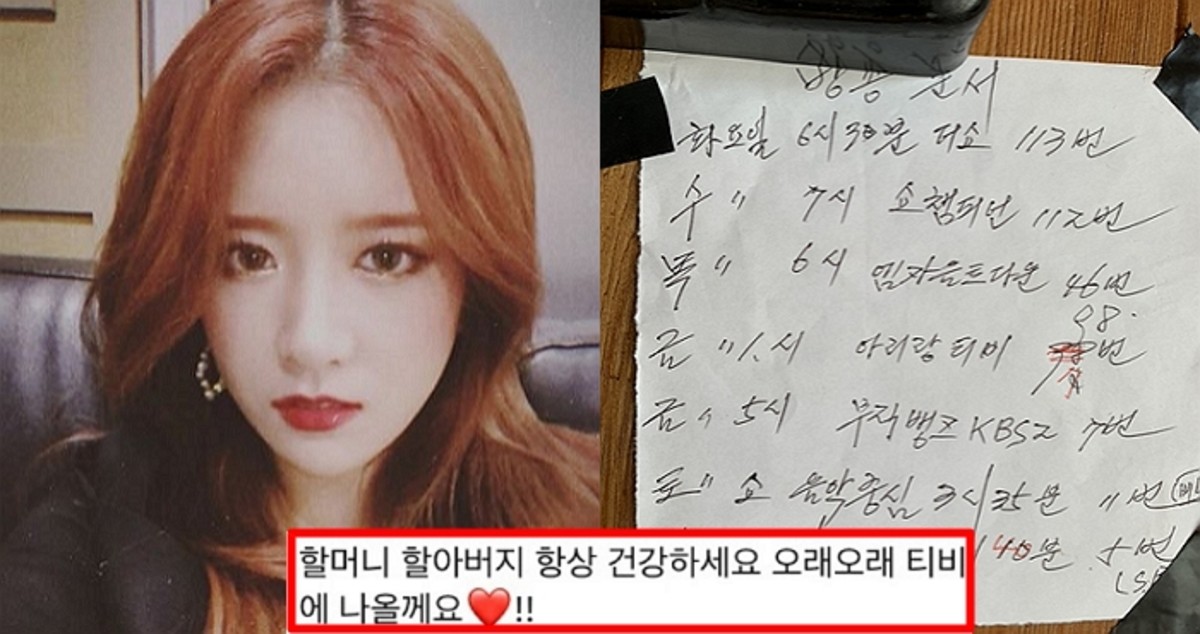 방송 순서
화요일 6시30분 더쇼 113번
수 〃 7시 쇼챔피언 112번
목 〃 6시 엠카음트다운 46번
98.
금 〃 1시 아리랑티비 번
금 〃 5시 뮤직뱅크 KBS2 7번
토 〃 쇼 음악중심 3시35분 11번
40분 5번
할머니 할아버지 항상 건강하세요 오래오래 티비
에 나올께요❤️!!